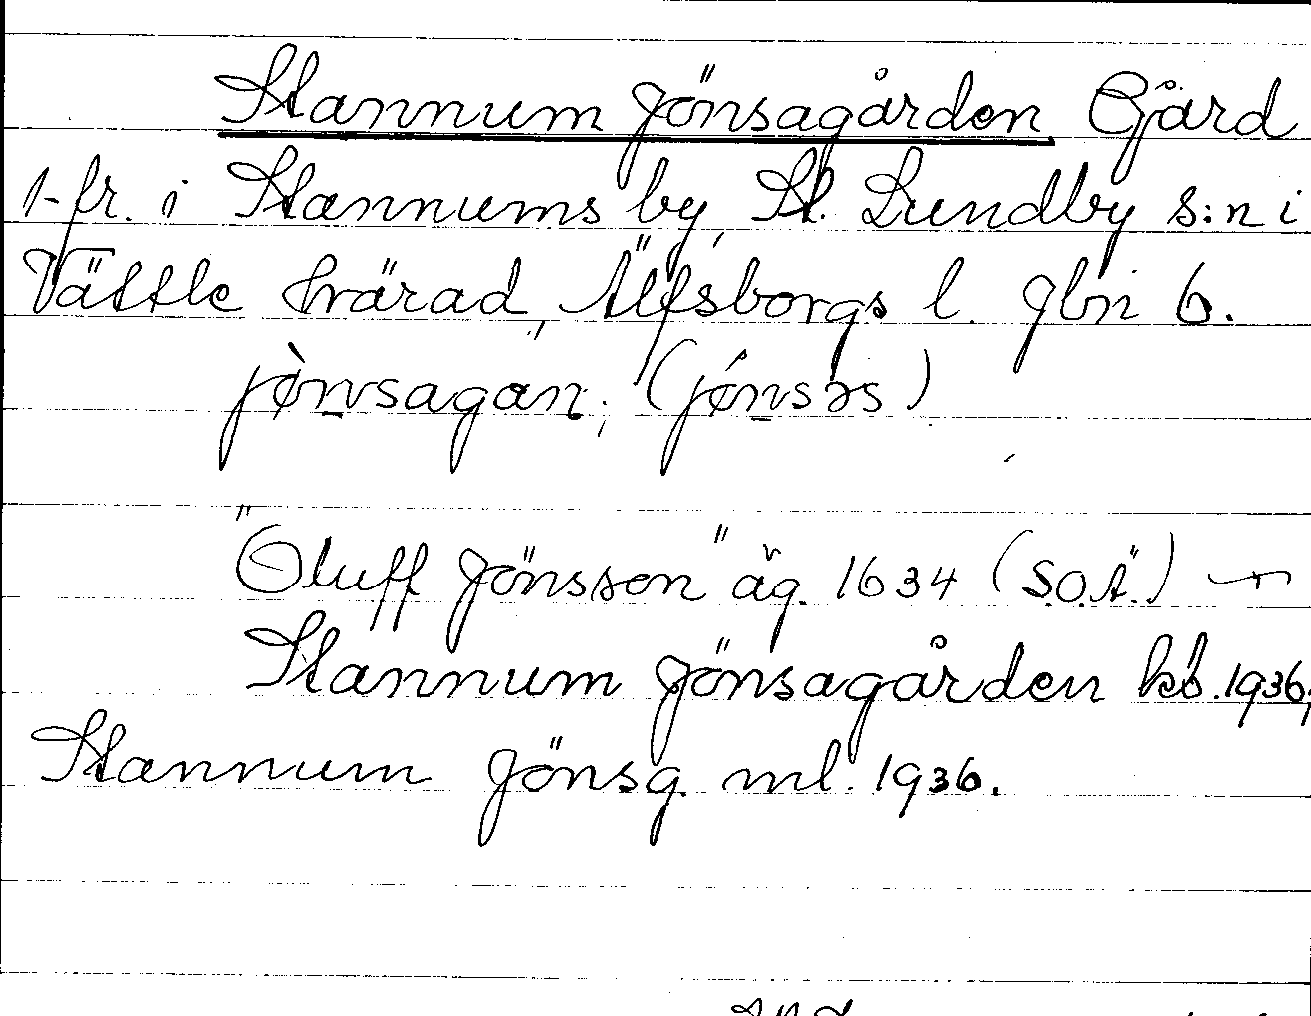 Stannum Jönsagården Gård
1-fr. i Stannums by, St. Lundby s:n i
Vättle härad, Älfsborgs l. Jbn 6.
jø̀nsagan; (jǿnsəs)
"Oluff Jönsson" äg. 1634 (S.O.Ä.) —
Stannum Jönsagården kb. 1936,
Stannum Jönsg. ml. 1936.